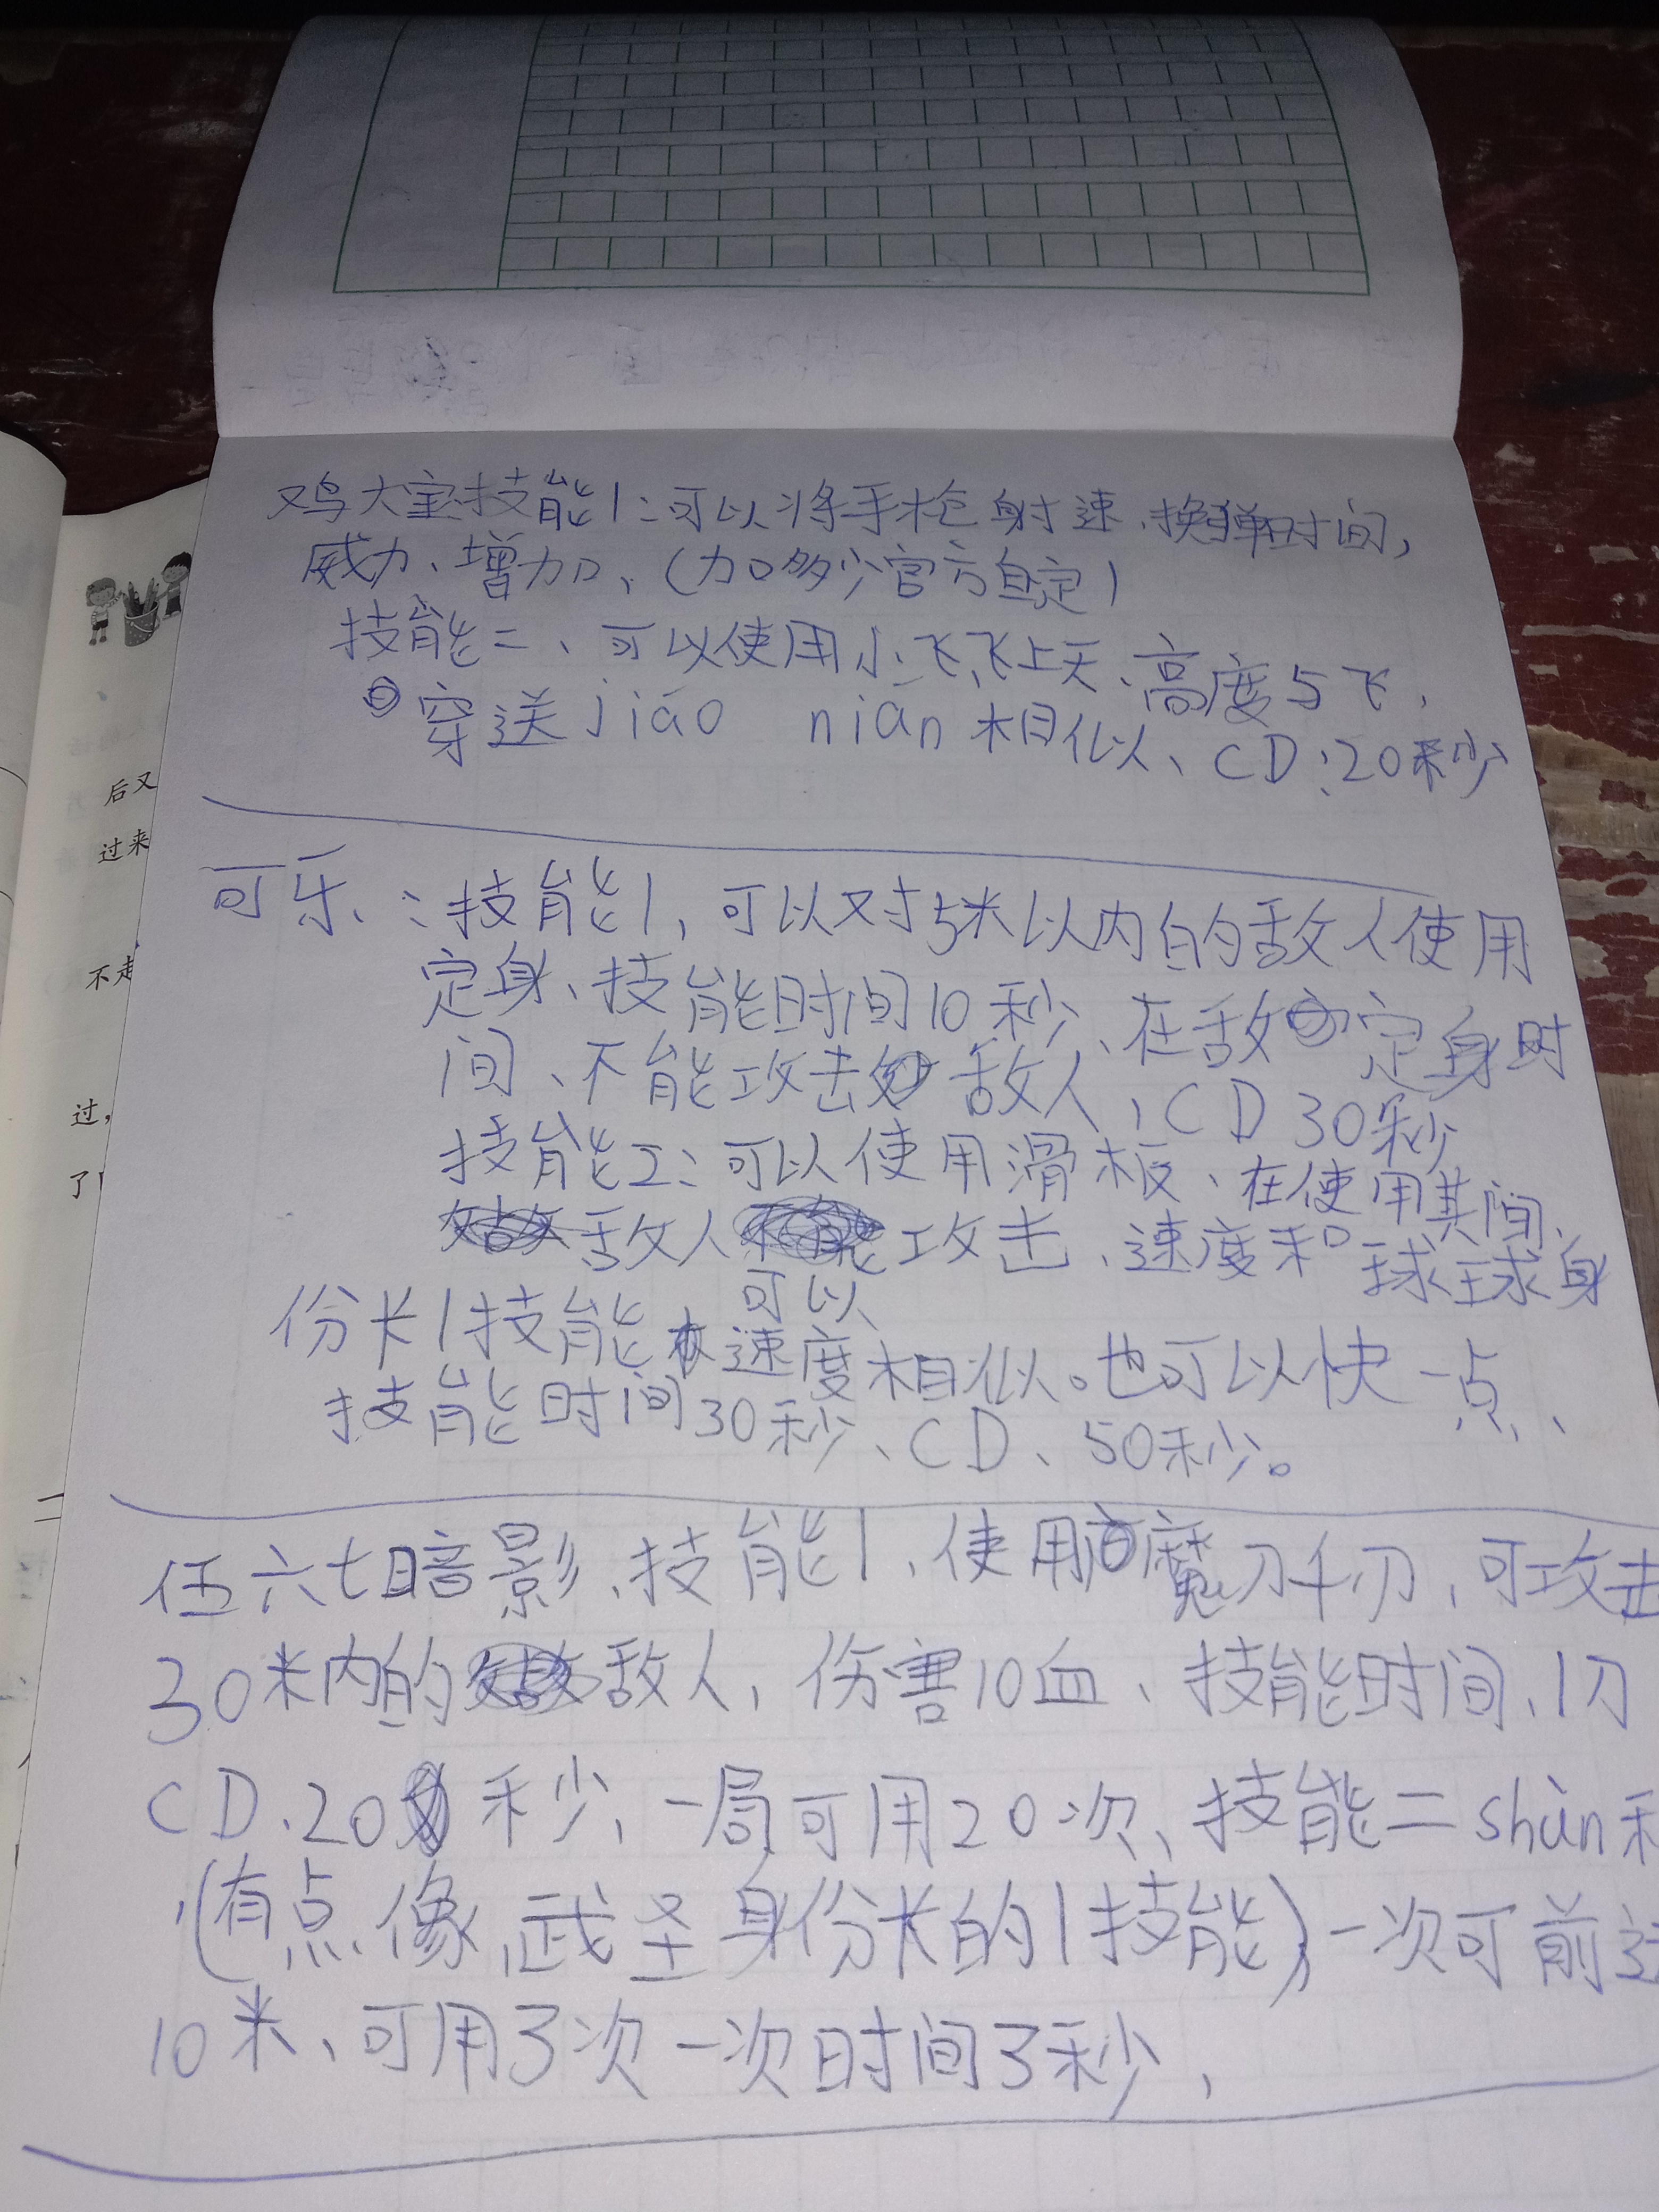 鸡大宝技能1:可以将手枪射速、换弹时间,
威力、增加、(加多少官方自定)
技能二、可以使用小飞飞上天、高度与飞、
穿送jiāo niān相似、CD:20秒
可乐、:技能1,可以对5米以内的敌人使用
定身、技能时间10秒、在敌定身时
间、不能攻击敌人,CD30秒
技能2:可以使用滑板、在使用其间、
敌人可以攻击、速度和球球身
份卡1技能速度相似。也可以快一点、
技能时间30秒、CD、50秒。
伍六七暗影、技能1、使用魔刀千刃,可攻击
30米内的敌人,伤害10血、技能时间、1刀
CD.20秒、一局可用20次、技能二shùn
(有点像武圣身份卡的1技能),一次可前
10米、可用3次一次时间3秒,
后又
过来
不走
过,
了